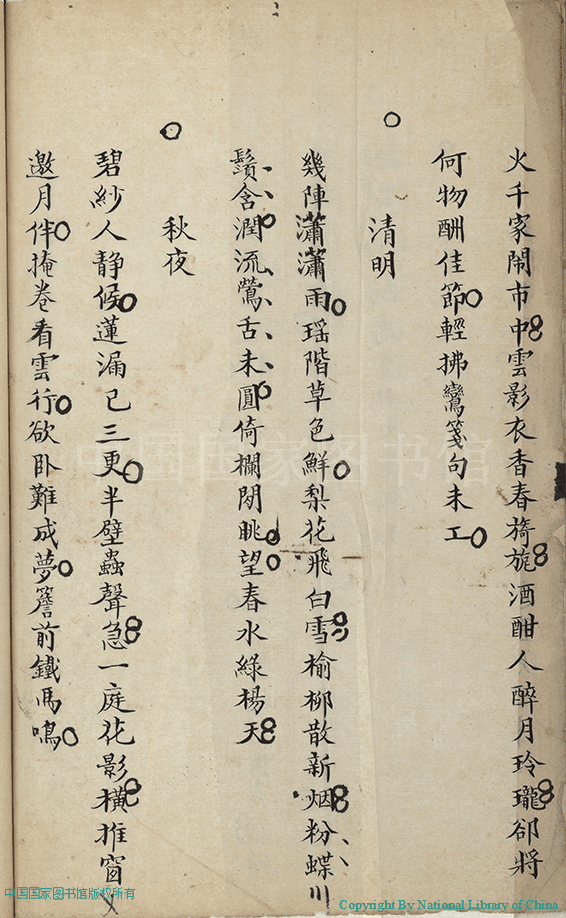 火千家鬧市中雲影衣香春旖旎酒酣人醉月玲瓏卻將
何物酬佳節輕拂鸞箋句未工
清明
幾陣瀟瀟雨瑤階草色鮮梨花飛白雪榆柳散新烟粉蝶
鬚含潤流鶯舌未圓倚欄閒眺望春水綠楊天
秋夜
碧紗人静候蓮漏已三更半壁蟲聲急一庭花影橫推窗
邀月伴掩卷看雲行欲卧難成夢簷前鐵馬鳴
中国国家图书馆
中国国家图书馆版权所有
Copyright By National Library of China